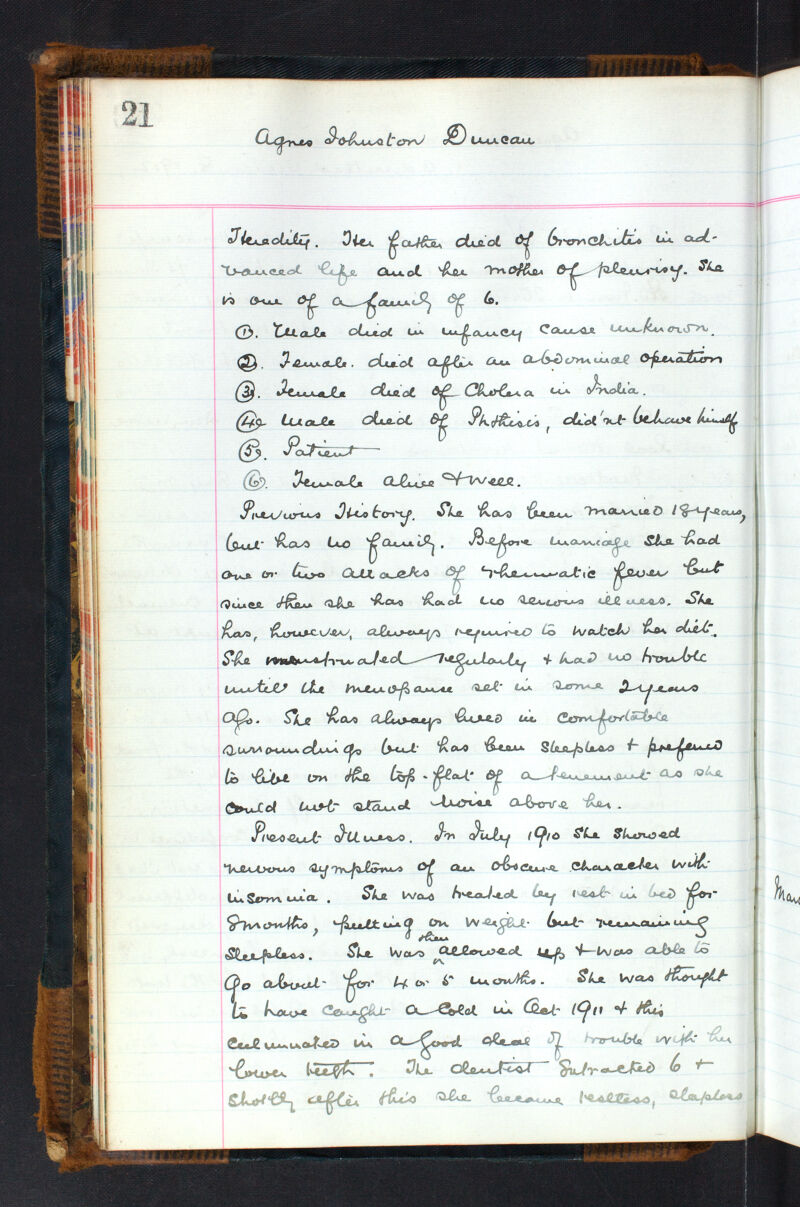 21
Agnes Johnston Duncan
Heredity. Her father died of bronchitis in ad-
vanced life and her mother of pleurisy. She
is one of a family of 6.
①. Male died in infancy cause unknown.
②. Female. died after an abdominal operation
③. Female died of Cholera in India.
④ Male died of Phthisis, did'nt behave himself
⑤. Patient
⑥. Female alive & well.
Previous History. She has been married 18 years,
but has no family. Before marriage she had
one or two attacks of rheumatic fever but
since then she has had no serious illness. She
has, however, always required to watch her diet.
She menstruated regularly & had no trouble
until the menopause set in some 2 years
ago. She has always lived in comfortable
surroundings but has been sleepless & preferred
to live on the top-flat of a tenement as she
could not stand noise above her.
Present Illness. In July 1910 she showed
nervous symptoms of an obscure character with
insomnia. She was treated by rest in bed for
3 months, putting on weight but remaining
sleepless. She was then allowed up & was able to
go about for 4 or 5 months. She was thought
to have caught a Cold in Oct 1911 & this
culminated in a good deal of trouble with her
lower teeth. The dentist extracted 6 &
shortly after this she became restless, sleepless
Man